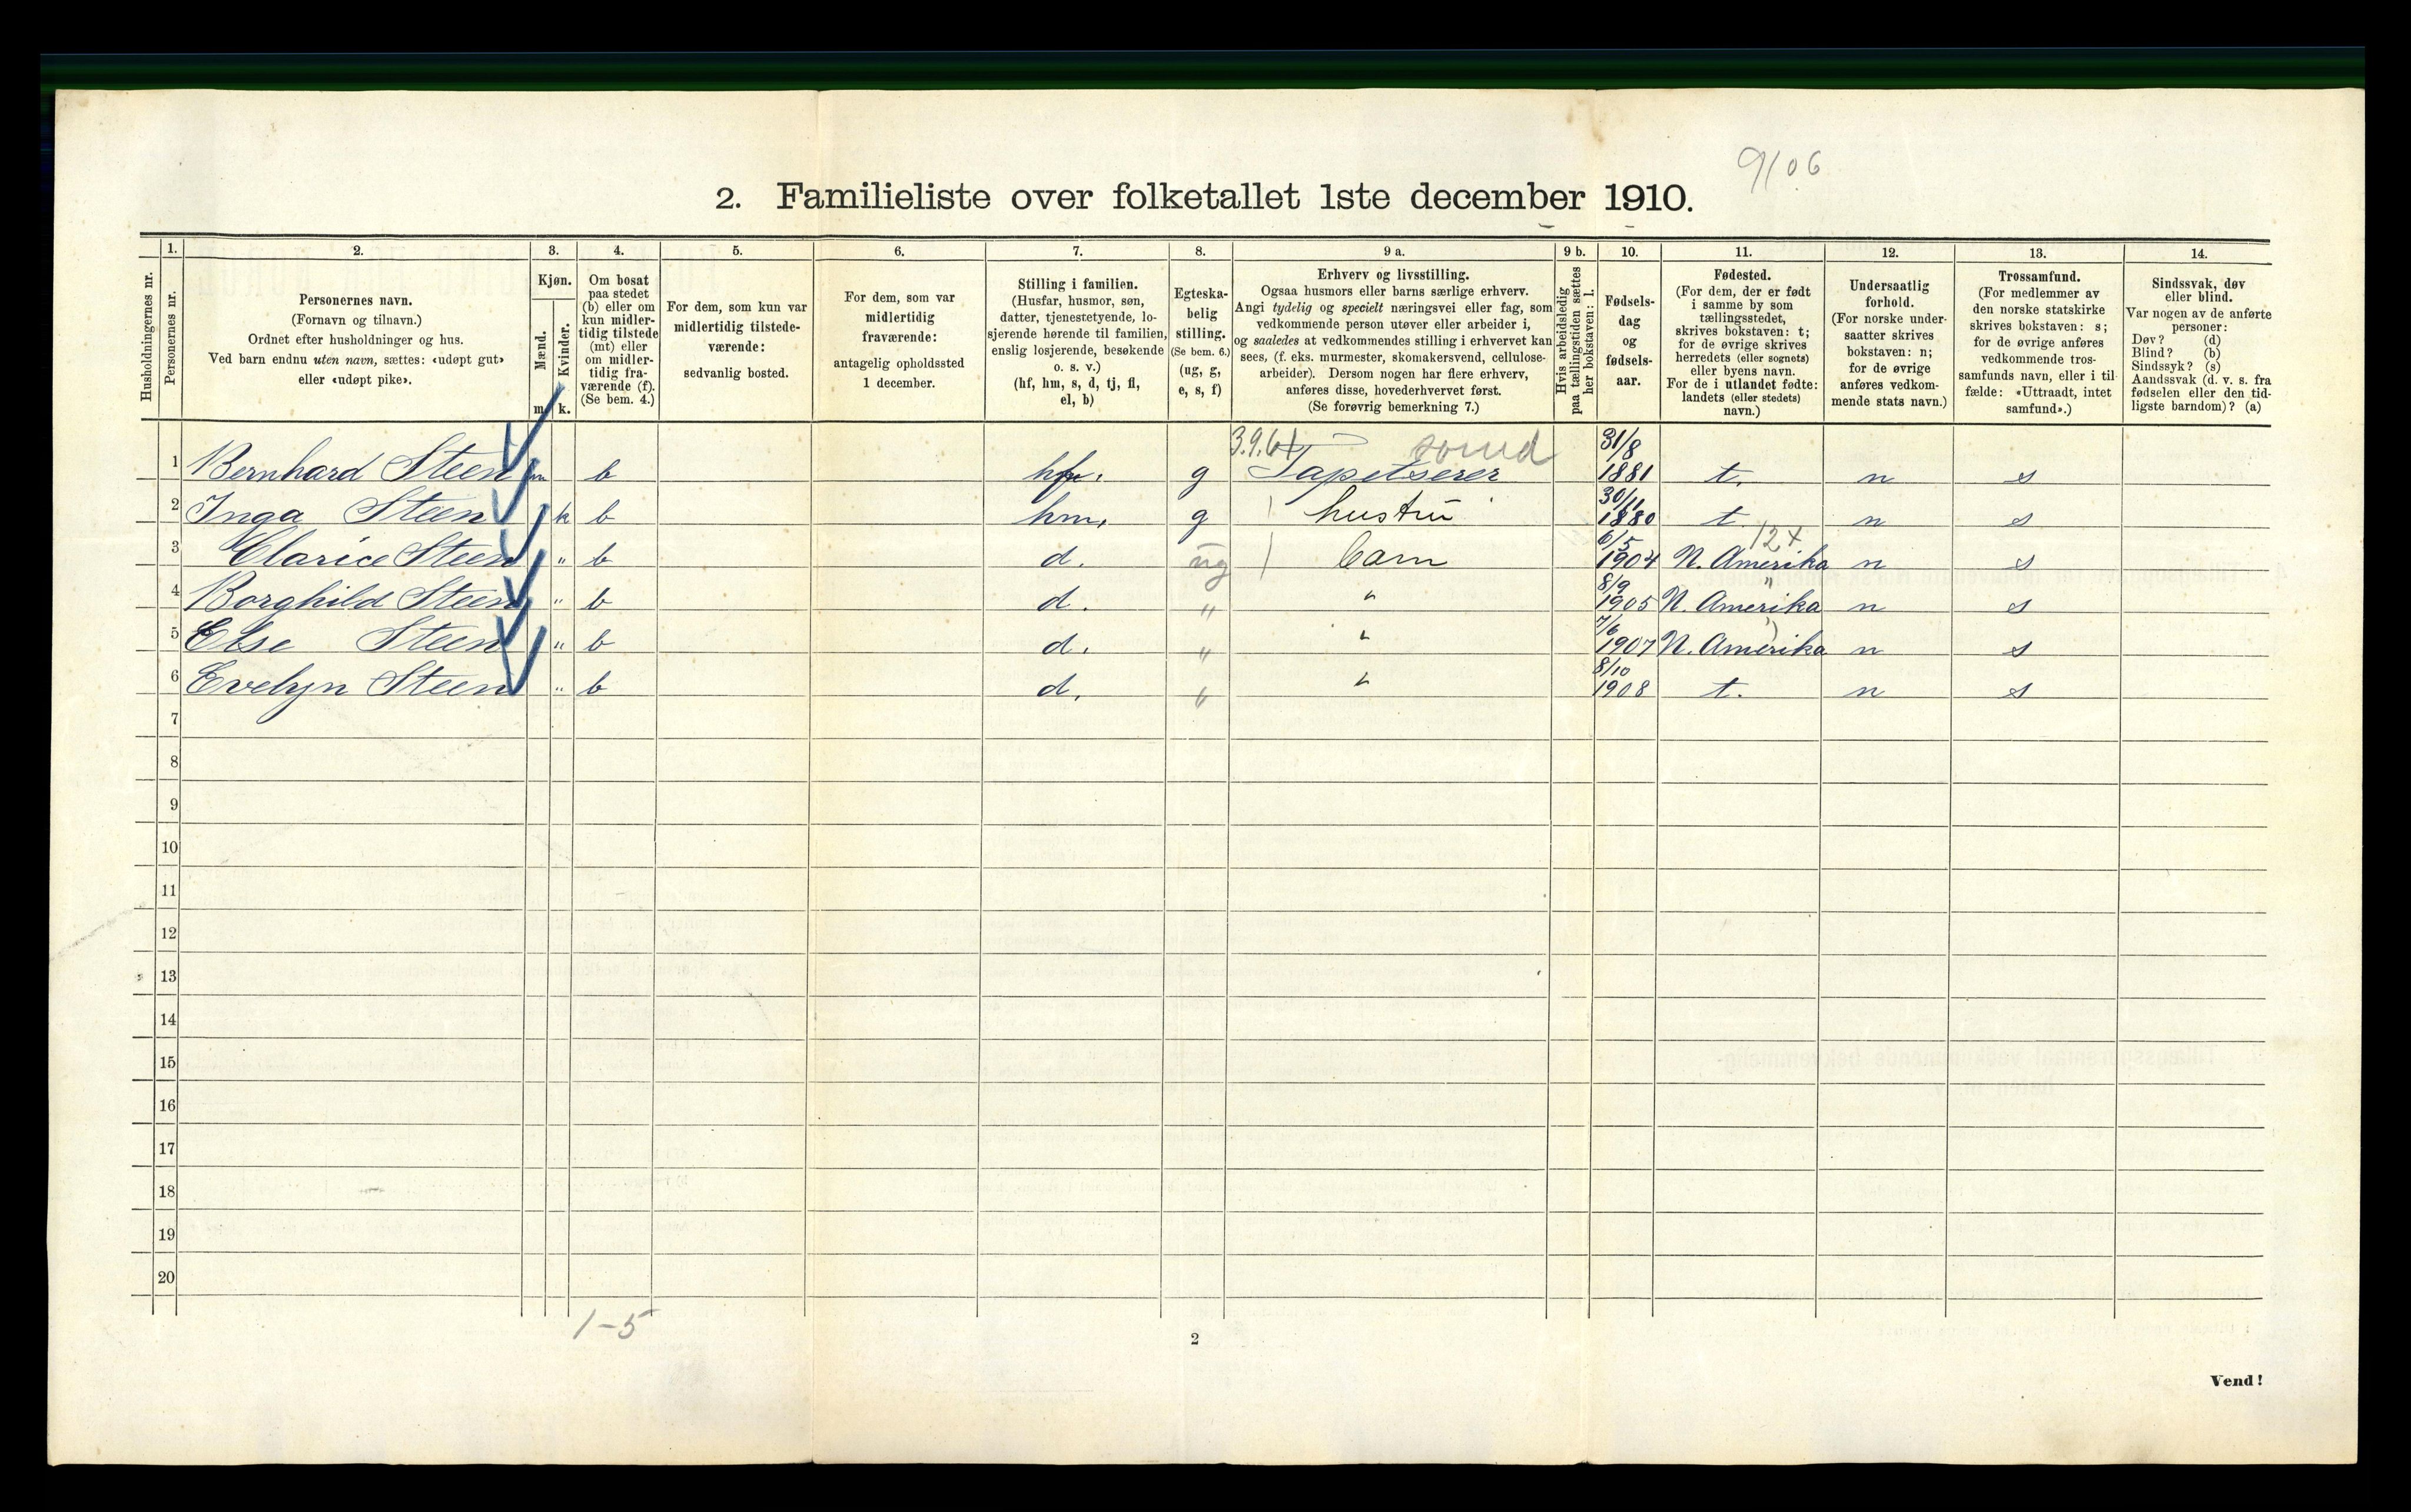 9/06
2. Familieliste over folketallet 1ste december 1910.
Husholdningernes nr.
1.
Personernes nr.
2.
Personernes navn.
(Fornavn og tilnavn.)
Ordnet efter husholdninger og hus.
Ved barn endnu uten navn, sættes: «udøpt gut»
eller «udøpt pike».
3.
Kjøn.
Mænd.
Kvinder.
m. k.
4.
Om bosat
paa stedet
(b) eller om
kun midler-
tidig tilstede
(mt) eller
om midler-
tidig fra-
værende (f).
(Se bem. 4.)
5.
For dem, som kun var
midlertidig tilstede-
værende:
sedvanlig bosted.
6.
For dem, som var
midlertidig
fraværende:
antagelig opholdssted
1 december.
7.
Stilling i familien.
(Husfar, husmor, søn,
datter, tjenestetyende, lo-
sjerende hørende til familien,
enslig losjerende, besøkende
o. s. v.)
(hf, hm, s, d, tj, fl,
el, b)
8.
Egteska-
belig
stilling.
(Se bem. 6.)
(ug, g,
e, s, f)
9 a.
Erhverv og livsstilling.
Ogsaa husmors eller barns særlige erhverv.
Angi tydelig og specielt næringsvei eller fag, som
vedkommende person utøver eller arbeider i,
og saaledes at vedkommendes stilling i erhvervet kan
sees, (f. eks. murmester, skomakersvend, cellulose-
arbeider). Dersom nogen har flere erhverv,
anføres disse, hovederhvervet først.
(Se forøvrig bemerkning 7.)
9 b.
Hvis arbeidsledig
paa tællingstiden sættes
her bokstaven: l.
10.
Fødsels-
dag
og
fødsels-
aar.
11.
Fødested.
(For dem, der er født
i samme by som
tællingsstedet,
skrives bokstaven: t;
for de øvrige skrives
herredets (eller sognets)
eller byens navn.
For de i utlandet fødte:
landets (eller stedets)
navn.)
12.
Undersaatlig
forhold.
(For norske under-
saatter skrives
bokstaven: n;
for de øvrige
anføres vedkom-
mende stats navn.)
13.
Trossamfund.
(For medlemmer av
den norske statskirke
skrives bokstaven: s;
for de øvrige anføres
vedkommende tros-
samfunds navn, eller i til-
fælde: «Uttraadt, intet
samfund».)
14.
Sindssvak, døv
eller blind.
Var nogen av de anførte
personer:
Døv? (d)
Blind? (b)
Sindssyk? (s)
Aandssvak (d. v. s. fra
fødselen eller den tid-
ligste barndom)? (a)
3.9.61 31/8
1 Bernhard Steen m b hf. g Tapetserer 1881 t. n s
30/11
2 Inga Steen k b hm. g hustru 1880 t. n s
6/5 12+
3 Clarice Steen " b d. ug barn 1904 N. Amerika n s
8/9 "
4 Borghild Steen " b d. " " 1905 N. Amerika n s
7/6 "
5 Else Steen " b d. " " 1907 N. Amerika n s
8/10
6 Evelyn Steen " b d. " " 1908 t. n s
7
8
9
10
11
12
13
14
15
16
17
18
19
20
1-5
2
Vend!